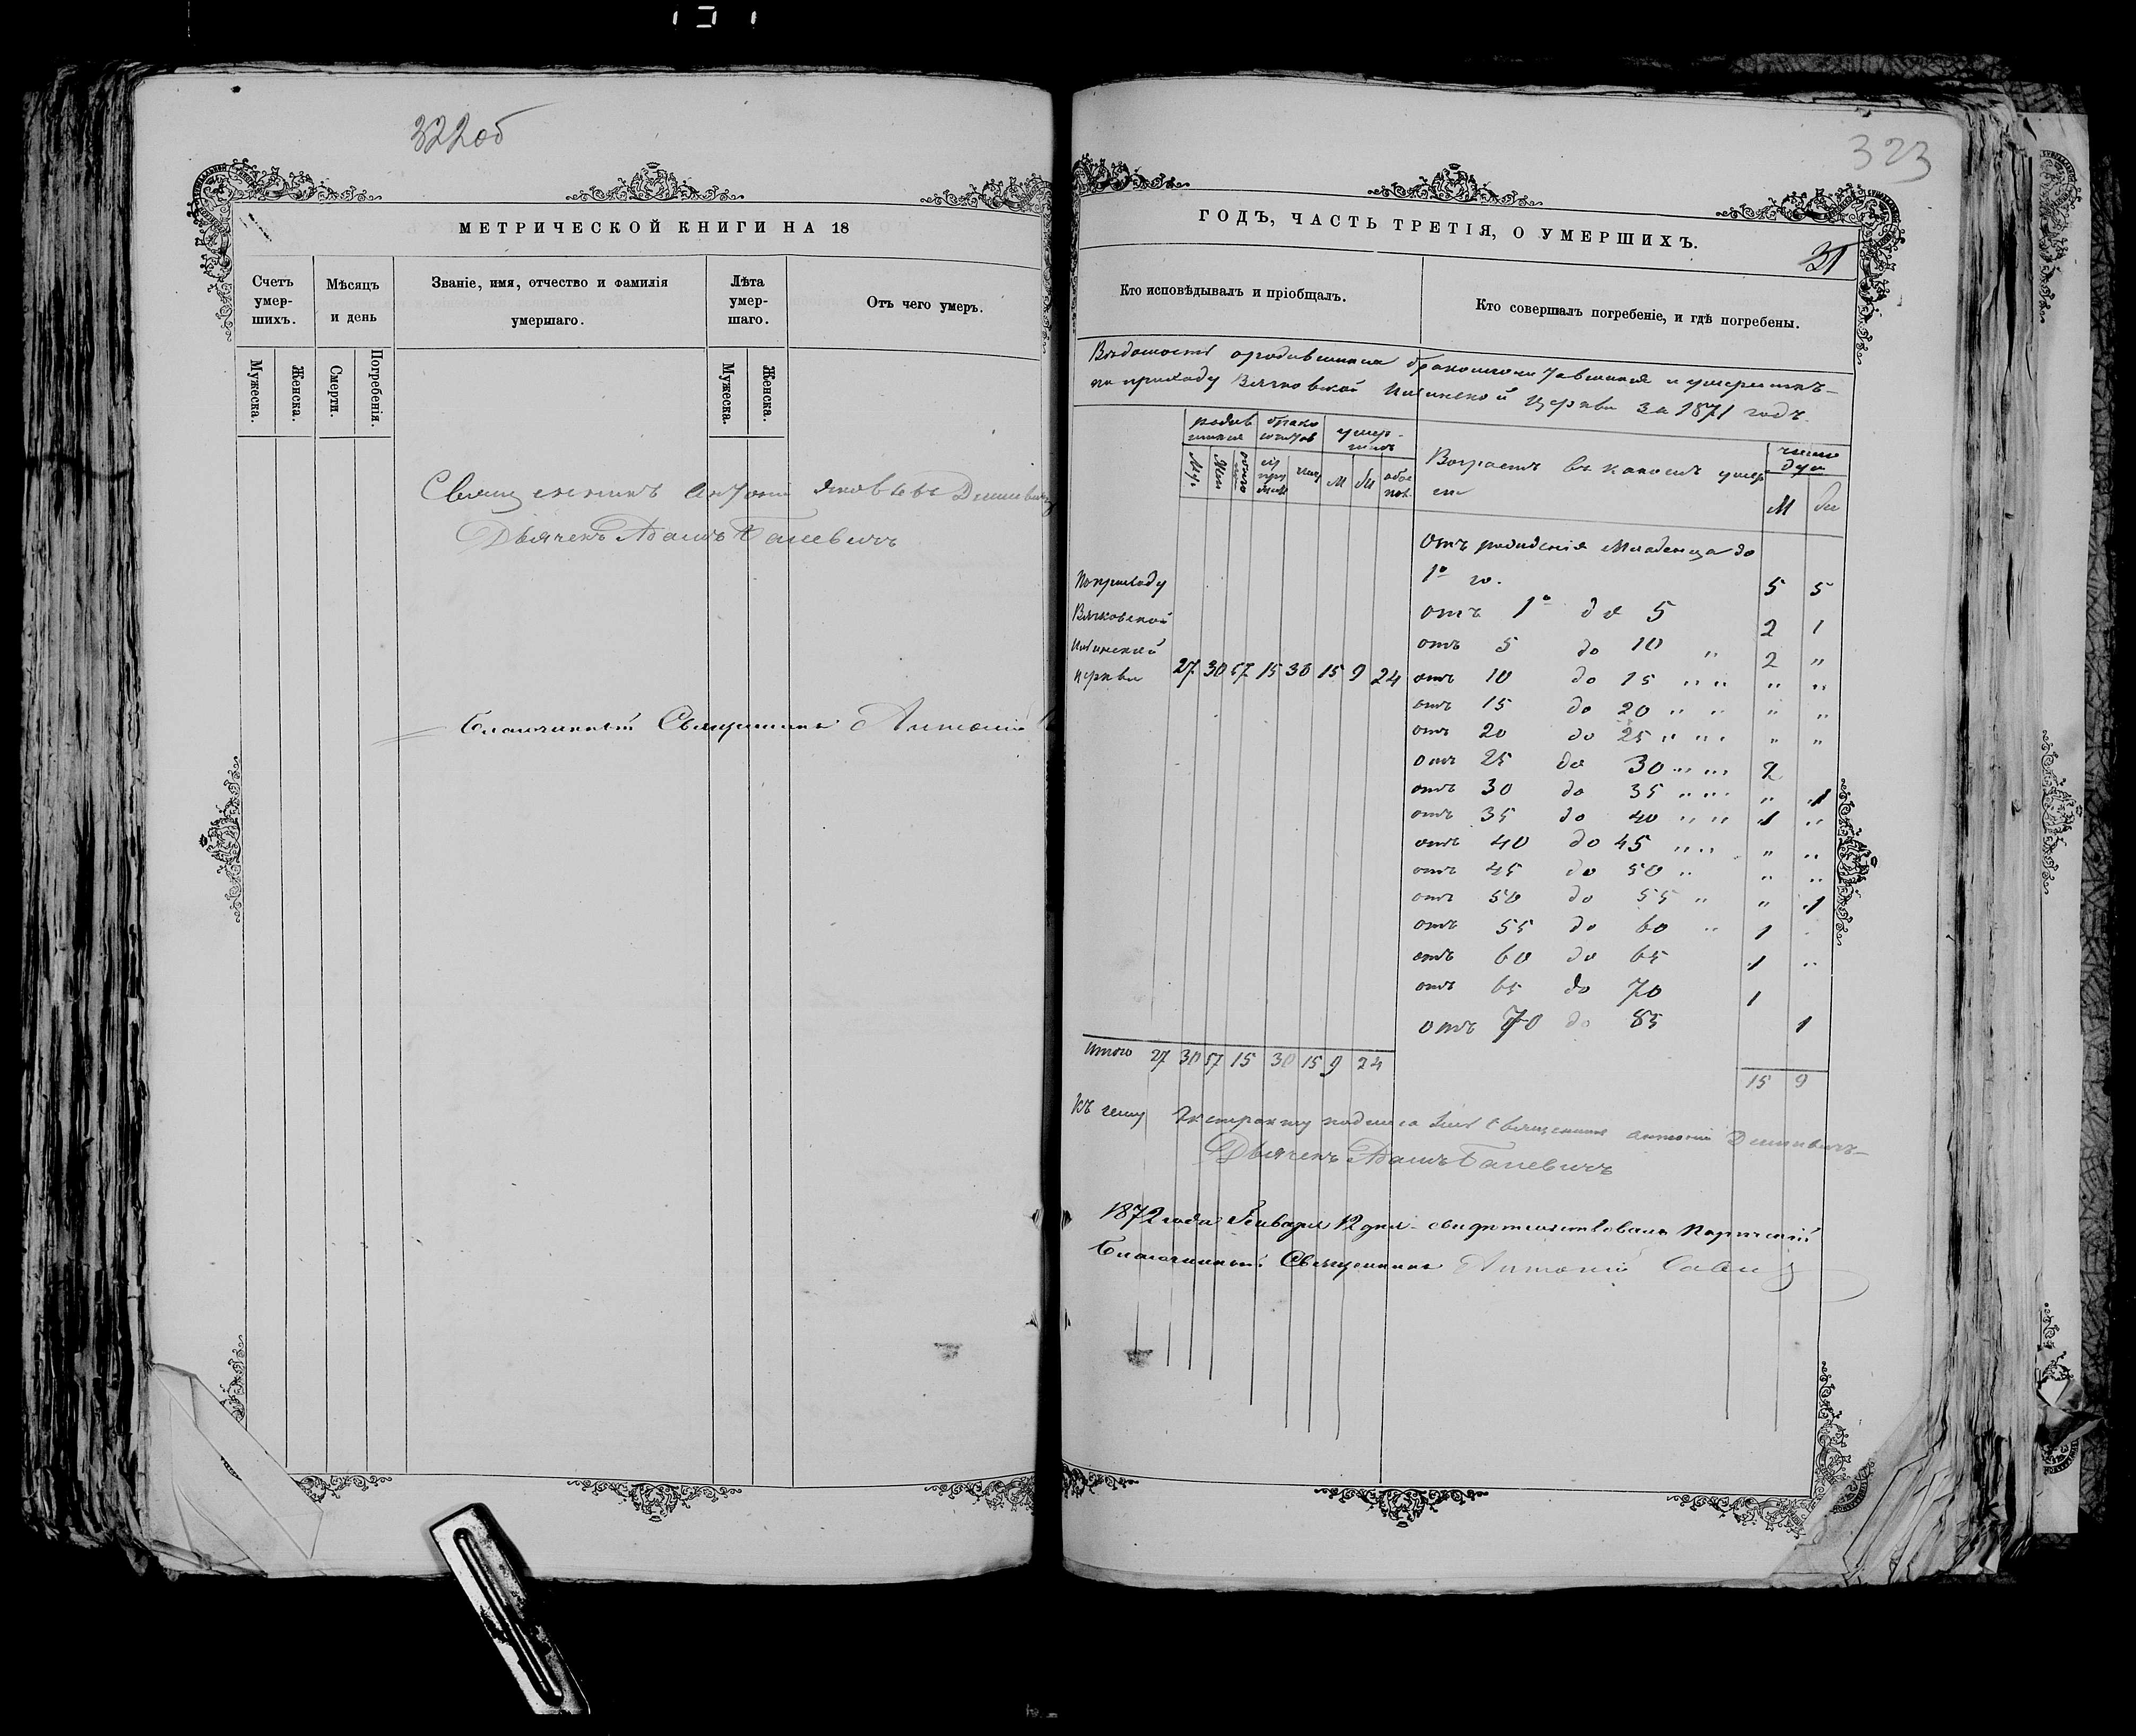 322об
МЕТРИЧЕСКОЙ КНИГИ НА 18
Счетъ умер-шихъ.
Мѣсяцъ и день
Званіе, имя, отчество и фамилія умершаго.
Лѣта умер-шаго.
Отъ чего умеръ.
Мужеска.
Женска.
Смерти.
Погребенія.
Мужеска.
Женска.
Священникъ Антоній Яковлевъ
Дьячекъ Адамъ
Благочинный Священникъ Антоній
323
ГОДЪ, ЧАСТЬ ТРЕТІЯ, О УМЕРШИХЪ.
31
Кто исповѣдывалъ и пріобщалъ.
Кто совершалъ погребеніе, и гдѣ погребены.
Вѣдомость о родившихся бракосочетавшихся и умершихъ
по приходу Церкви за 1871 годъ.
Возрастъ въ какомъ умер
ли
число душ
М
Отъ рожденія младенца до
1º го. 5 5
отъ 1º до 5 2 1
отъ 5 до 10 " 2 "
отъ 10 до 15 " " " "
отъ 15 до 20 " " " "
отъ 20 до 25 " " " "
отъ 25 до 30 " " 2
отъ 30 до 35 " " " 1
отъ 35 до 40 " " 1 "
отъ 40 до 45 " " " "
отъ 45 до 50 " " "
отъ 50 до 55 " " 1
отъ 55 до 60 " 1
отъ 60 до 65 1 "
отъ 65 до 70 1
отъ 70 до 85 1
По приходу
церкви 27 30 57 15 30 15 9 24
итого 27 30 57 15 30 15 9 24
15 9
Къ сему Экстракту Священникъ Антоній
Дьячекъ Адамъ
1872 года Января 12 дня свидѣтельствовалъ
Благочинный Священникъ Антоній